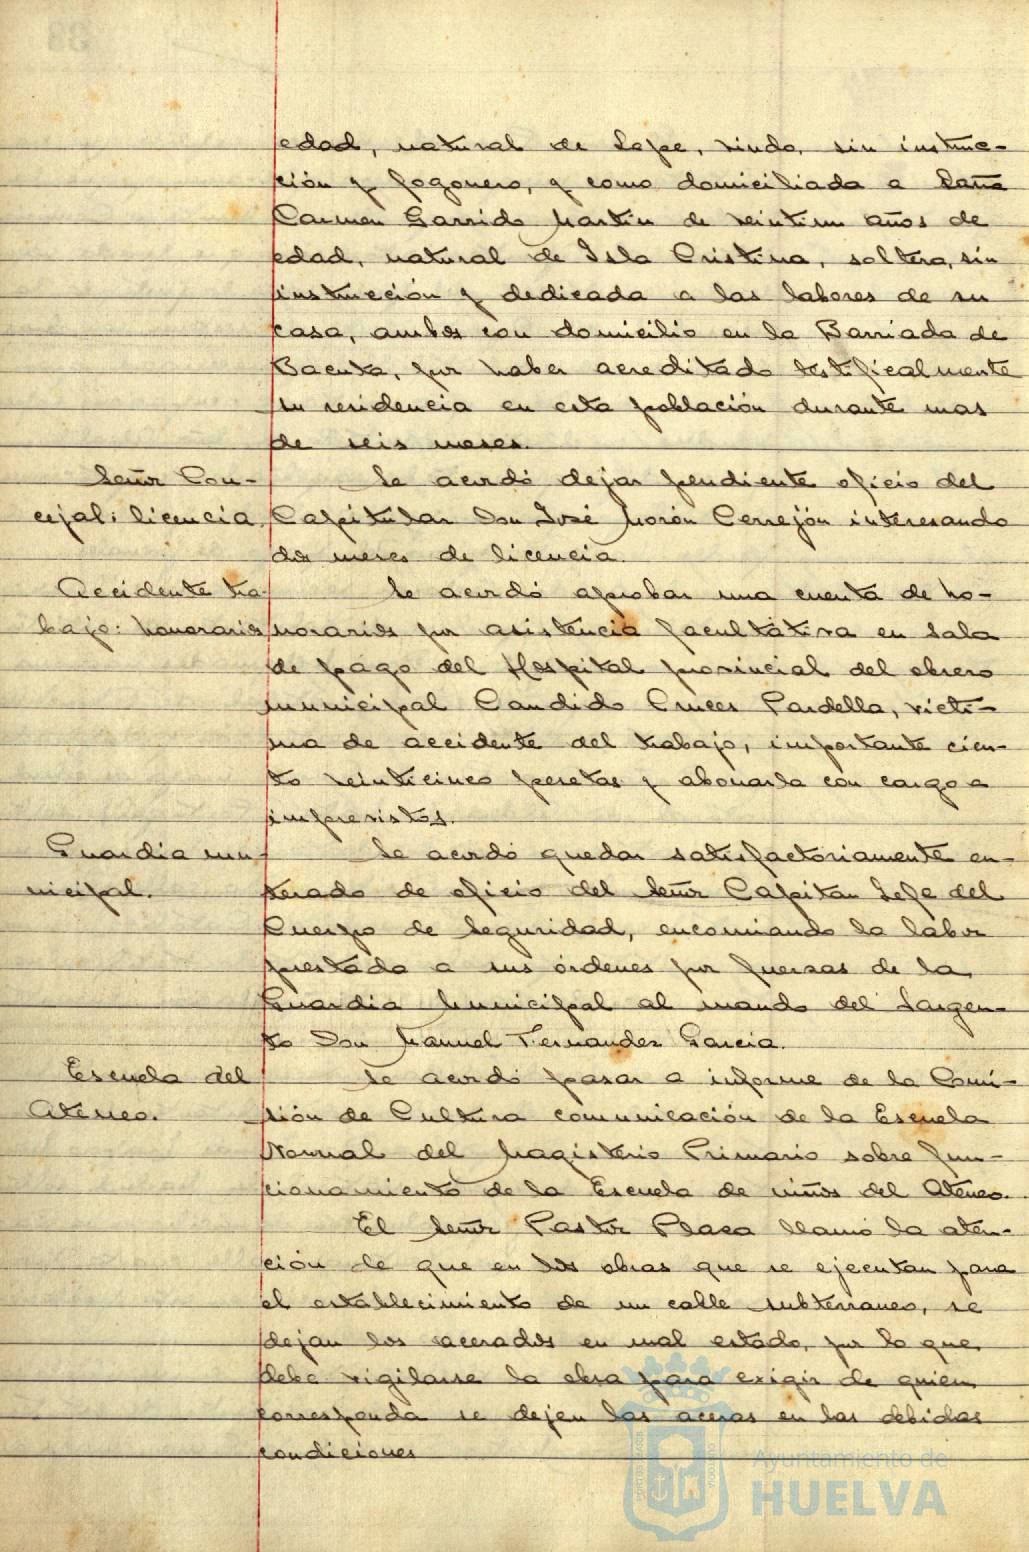 edad, natural de Lepe, viudo, sin instruc-
ción y fogonero, y como domiciliada a Doña
Carmen Garrido Martín de veintiun años de
edad, natural de Isla Cristina, soltera, sin
instrucción y dedicada a las labores de su
casa, ambos con domicilio en la Barriada de
Bacuta, por haber acreditado testificalmente
su residencia en esta población durante mas
de seis meses.
Señor Con-
cejal: licencia.
Se acordó dejar pendiente oficio del
Capitular Don José Morón Cerrejón interesando
dos meses de licencia.
Accidente tra-
bajo: honorarios
Se acordó aprobar una cuenta de ho-
norarios por asistencia facultativa en Sala
de pago del Hospital provincial del obrero
municipal Candido Cruces Pardella, vícti-
ma de accidente del trabajo, importante cien-
to veinticinco pesetas y abonarla con cargo a
imprevistos.
Guardia mu-
nicipal.
Se acordó quedar satisfactoriamente en-
terado de oficio del Señor Capitan Jefe del
Cuerpo de Seguridad, encomiando la labor
prestada a sus órdenes por fuerzas de la
Guardia Municipal al mando del Sargen-
to Don Manuel Fernandez Garcia.
Escuela del
Ateneo.
Se acordó pasar a informe de la Comi-
sión de Cultura comunicación de la Escuela
Normal del Magisterio Primario sobre fun-
cionamiento de la Escuela de niños del Ateneo.
El Señor Pastor Plaza llamó la aten-
ción de que en las obras que se ejecutan para
el establecimiento de un cable subterraneo, se
dejan los acerados en mal estado, por lo que
debe vigilarse la obra para exigir de quien
corresponda se dejen las aceras en las debidas
condiciones
Ayuntamiento de
HUELVA